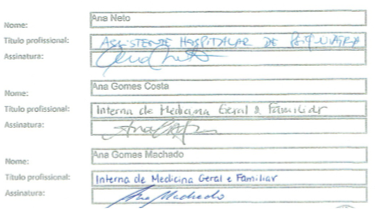 Nome: Ana Neto
Título profissional: ASSISTENTE HOSPITALAR DE
Assinatura: Ana Neto
Nome: Ana Gomes Costa
Título profissional: Interna de Medicina Geral e Familiar
Assinatura:
Nome: Ana Gomes Machado
Título profissional: Interna de Medicina Geral e Familiar
Assinatura: Ana Machado